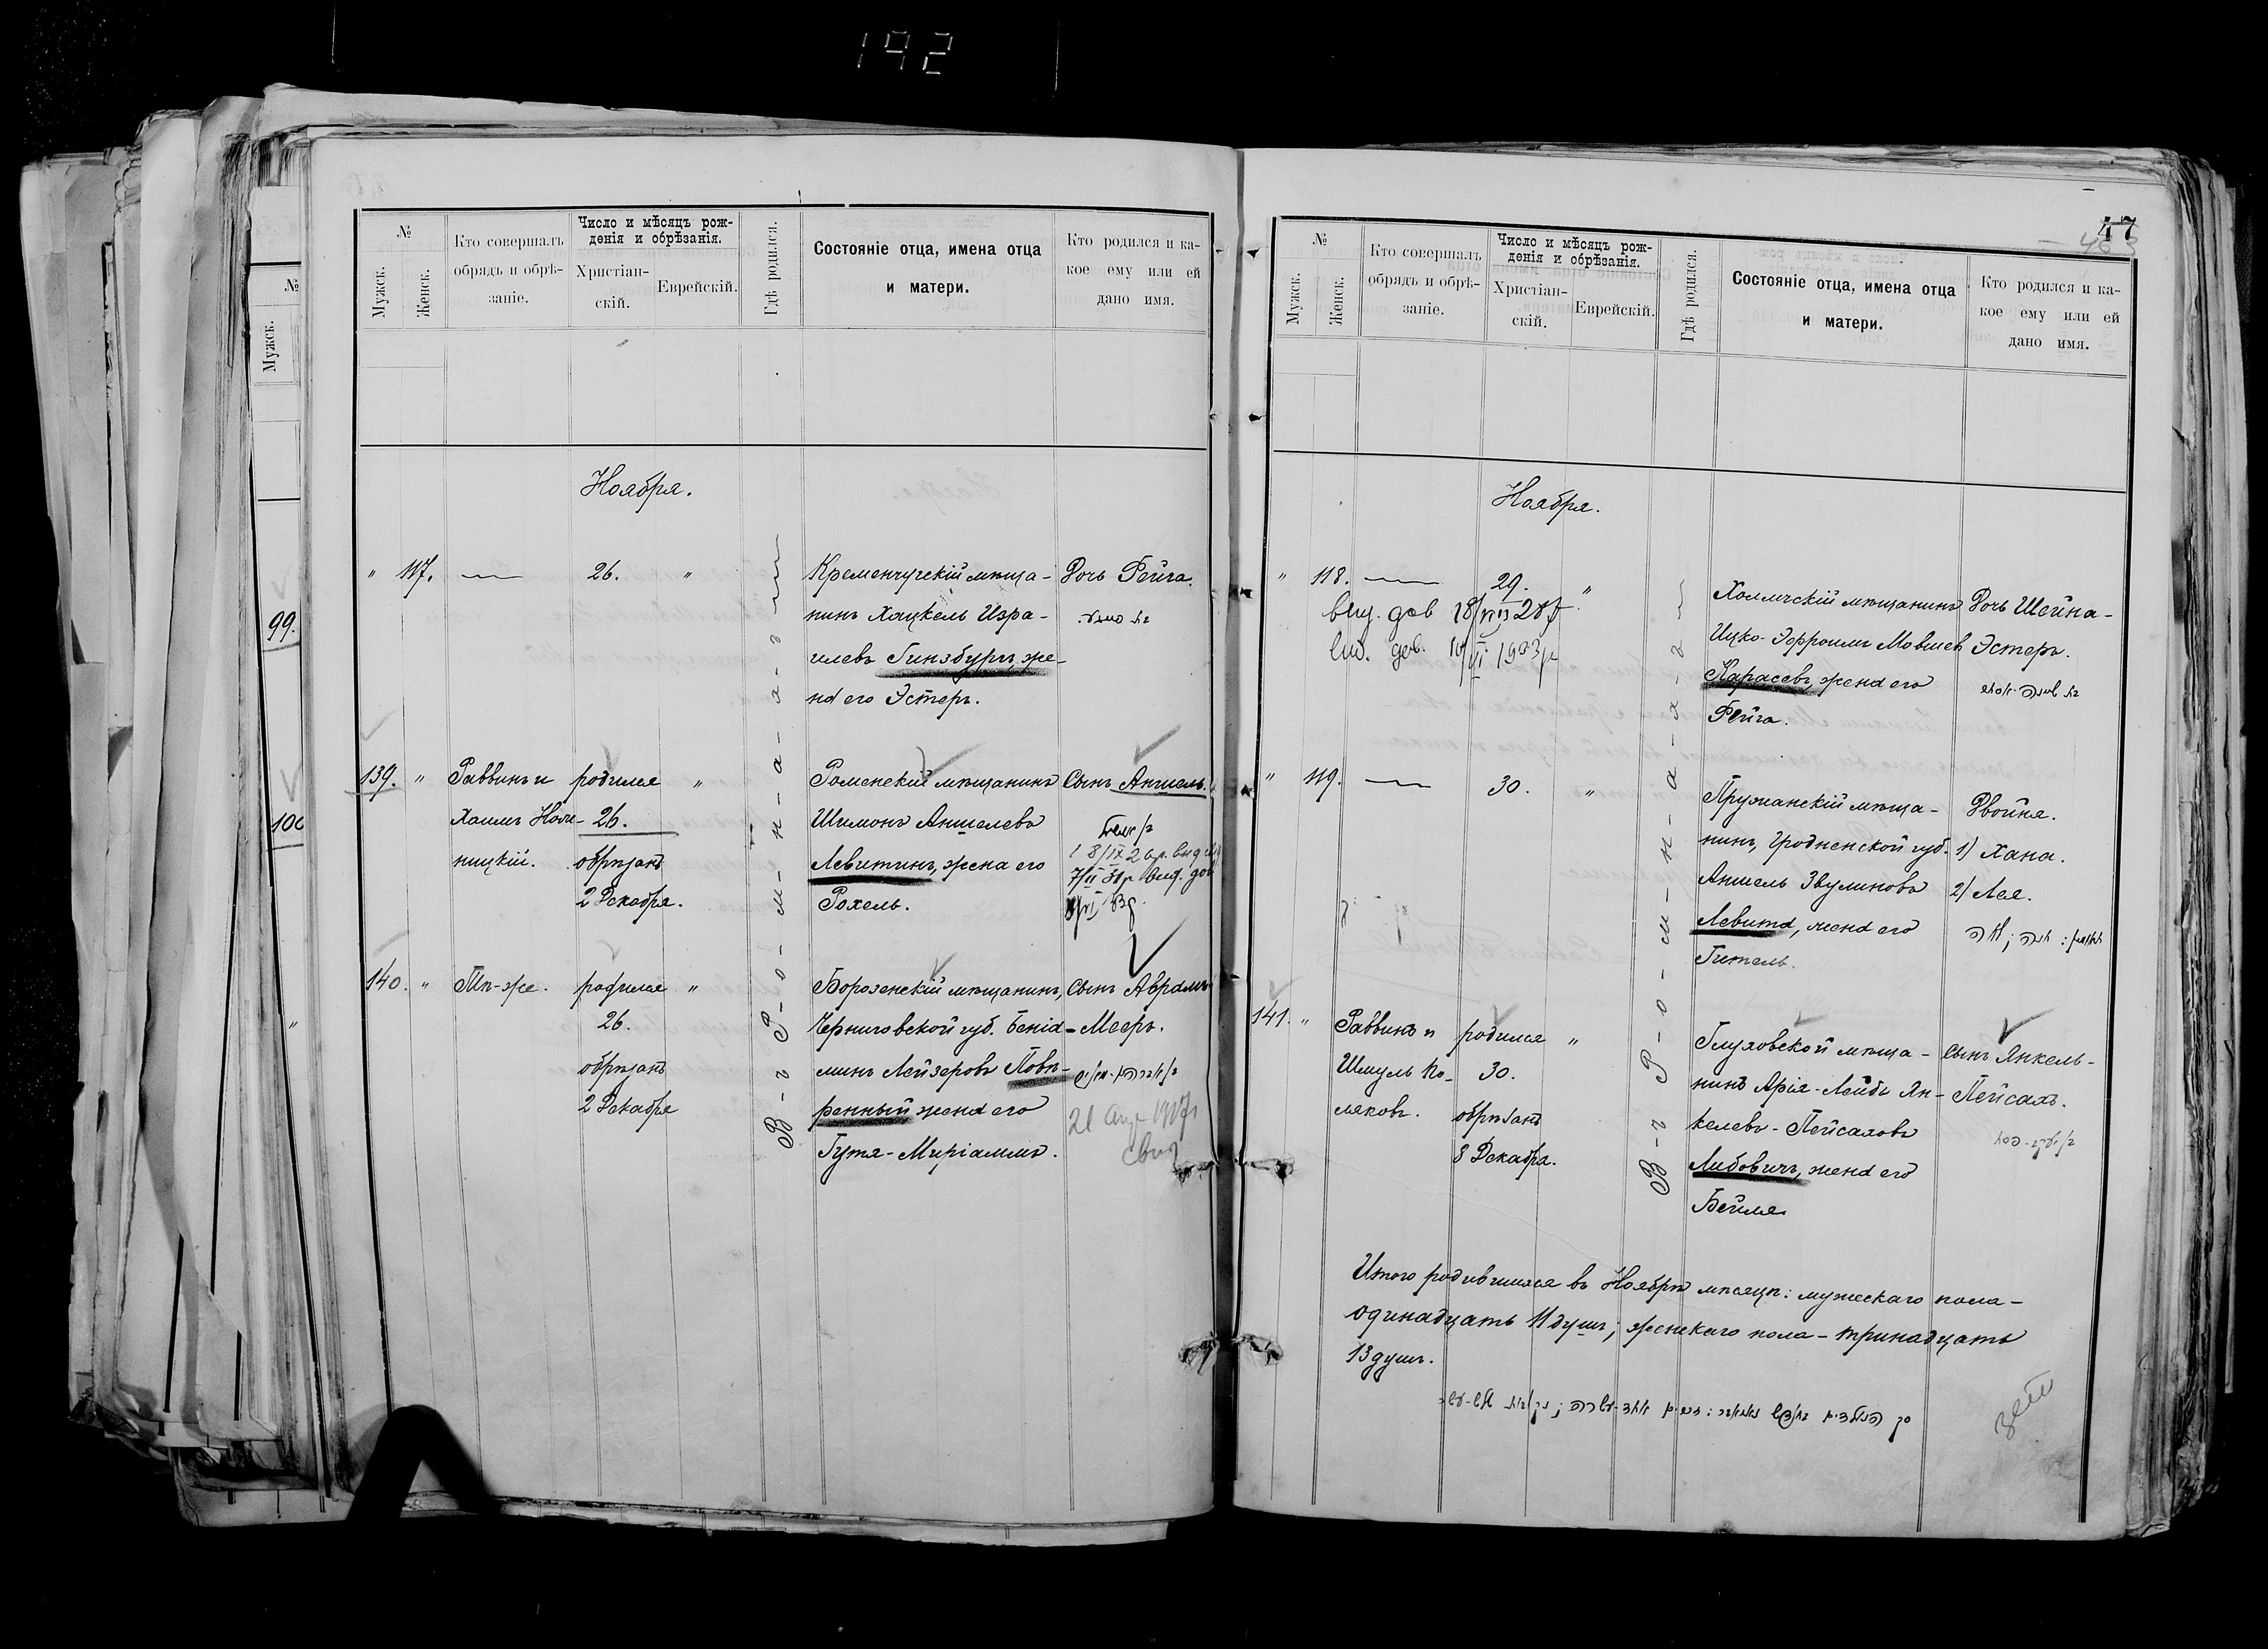 192
№
Мужск.
99.
100
№
Мужск.
Женск.
Кто совершалъ
обрядъ и обрѣ-
заніе.
Число и мѣсяцъ рож-
денія и обрѣзанія.
Христіан-
скій.
Еврейскій.
Гдѣ родился.
Состояніе отца, имена отца
и матери.
Кто родился и ка-
кое ему или ей
дано имя.
Ноября.
" 117. — 26. "
Кременчугскій мѣща-
нинъ Хацкель Изра-
илевъ Гинзбургъ, же-
на его Эстеръ.
Дочь Фейга.
139. " Раввинъ и
Хаимъ
ницкій.
родился "
26.
обрѣзанъ
2 Декабря.
Роменскій мѣщанинъ
Шимонъ Аншелевъ
Левитинъ, жена его
Рохель.
Сынъ Аншель.
140. " Тѣ-же.
родился "
26.
обрѣзанъ
2 Декабря
Борозенскій мѣщанинъ,
Черниговской губ. Бенiа-
минъ Лейзеровъ Повѣ-
ренный жена его
Гутя-Миріаммъ.
Сынъ Аврамъ-
Мееръ.
Въ Ромнахъ
47
№
Мужск.
Женск.
Кто совершалъ
обрядъ и обрѣ-
заніе.
Число и мѣсяцъ рож-
денія и обрѣзанія.
Христіан-
скій.
Еврейскій.
Гдѣ родился.
Состояніе отца, имена отца
и матери.
Кто родился и ка-
кое ему или ей
дано имя.
Ноября.
" 118. — 29. "
Холмскій мѣщанинъ
Ицко-Эфроимъ Мовшев
Карасевъ, жена его
Фейга.
Дочь Шейна-
Эстеръ.
" 119. — 30. "
Пружанскій мѣща-
нинъ, Гродненской губ.
Аншель Звулиновъ
Левита, жена его
Гитель.
Двойня.
1) Хана.
2) Лея.
141. " Раввинъ и
Шмуль По-
ляковъ.
родился "
30.
обрѣзанъ
3 Декабра.
Глуховской мѣща-
нинъ Арія-Лейбъ Ян-
келевъ-Пейсаховъ
Либовичъ, жена его
Бейля
Сынъ Янкель-
Пейсахъ.
Въ Ромнахъ
Итого родившихся въ Ноябрѣ мѣсяцѣ: мужескаго пола-
одинадцать 11 душъ; женскаго пола-тринадцать
13 душъ.